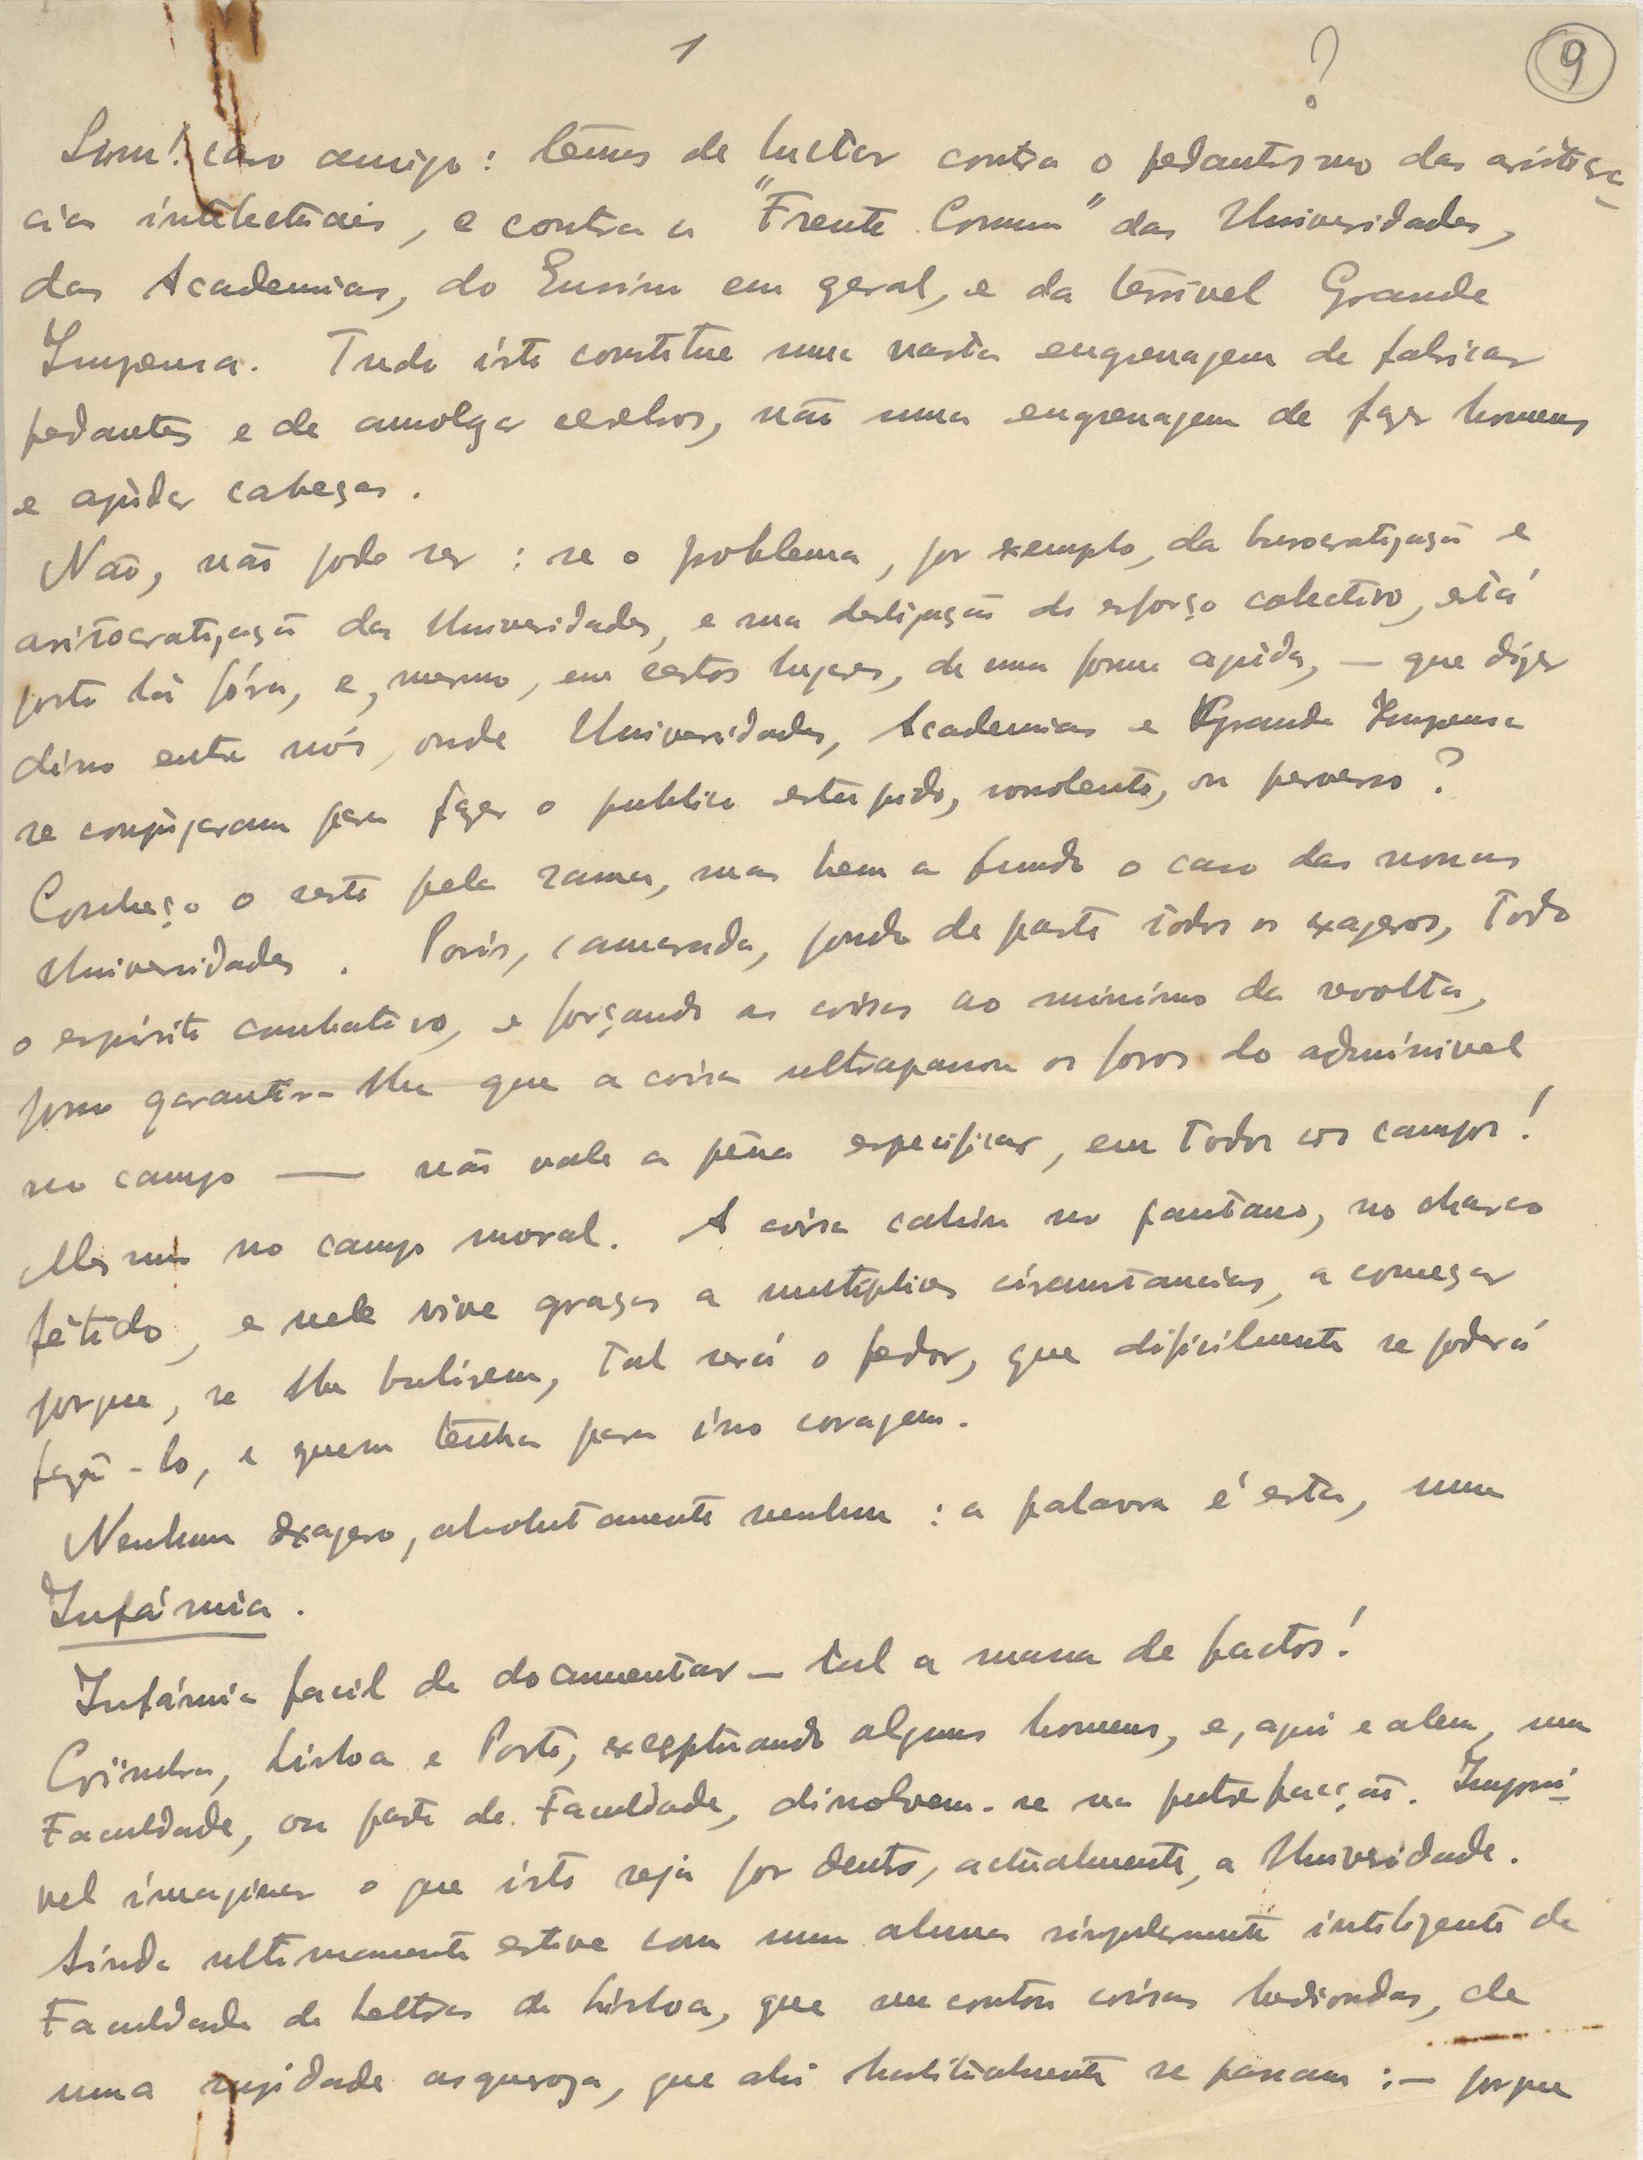 1 ? 9
Sim! caro amigo: têmos de luctar contra o pedantismo das aristocra-
cias intelectuais, e contra a "Frente Comum" das Universidades,
das Academias, do Ensino em geral, e da terrivel Grande
Imprensa. Tudo isto constitue uma vasta engrenagem de fabricar
pedantes e de amolgar cerebros, não uma engrenagem de fazer homens
e ajudar cabeças.
Não, não pode ser: se o problema, por exemplo, da burocratização e
aristocratização das Universidades, e sua desligação do esforço colectivo, está
posto lá fóra, e, mesmo, em certos lugares, de uma forma aguda, — que dizer
disso entre nós, onde Universidades, Academias e Grande Imprensa
se conjugaram para fazer o publico estupido, sonolento, ou perverso?
Conheço o resto pela rama, mas bem a fundo o caso das nossas
Universidades. Pois, camarada, pondo de parte todos os exageros, todo
o espirito combativo, e forçando as coisas ao minimo da revolta,
posso garantir-lhe que a coisa ultrapassou os foros do admissivel
no campo — não vale a pêna especificar, em todos os campos!
Mesmo no campo moral. A coisa cahiu no pantano, no charco
fétido, e nele vive graças a multiplices circunstancias, a começar
porque, se lhe bulirem, tal será o fedor, que dificilmente se poderá
fazê-lo, e quem tenha para isso coragem.
Nenhum exagero, absolutamente nenhum: a palavra é esta, uma
Infámia.
Infámia facil de documentar — tal a massa de factos!
Coimbra, Lisboa e Porto, exceptuando alguns homens, e, aqui e alem, uma
Faculdade, ou parte de Faculdade, dissolvem-se na putrefacção. Impossi-
vel imaginar o que isto seja por dentro, actualmente, a Universidade.
Ainda ultimamente estive com um aluno singularmente inteligente da
Faculdade de Lettras de Lisboa, que me contou coisas hediondas, de
uma sujidade asquerosa, que ali habitualmente se passam: — porque